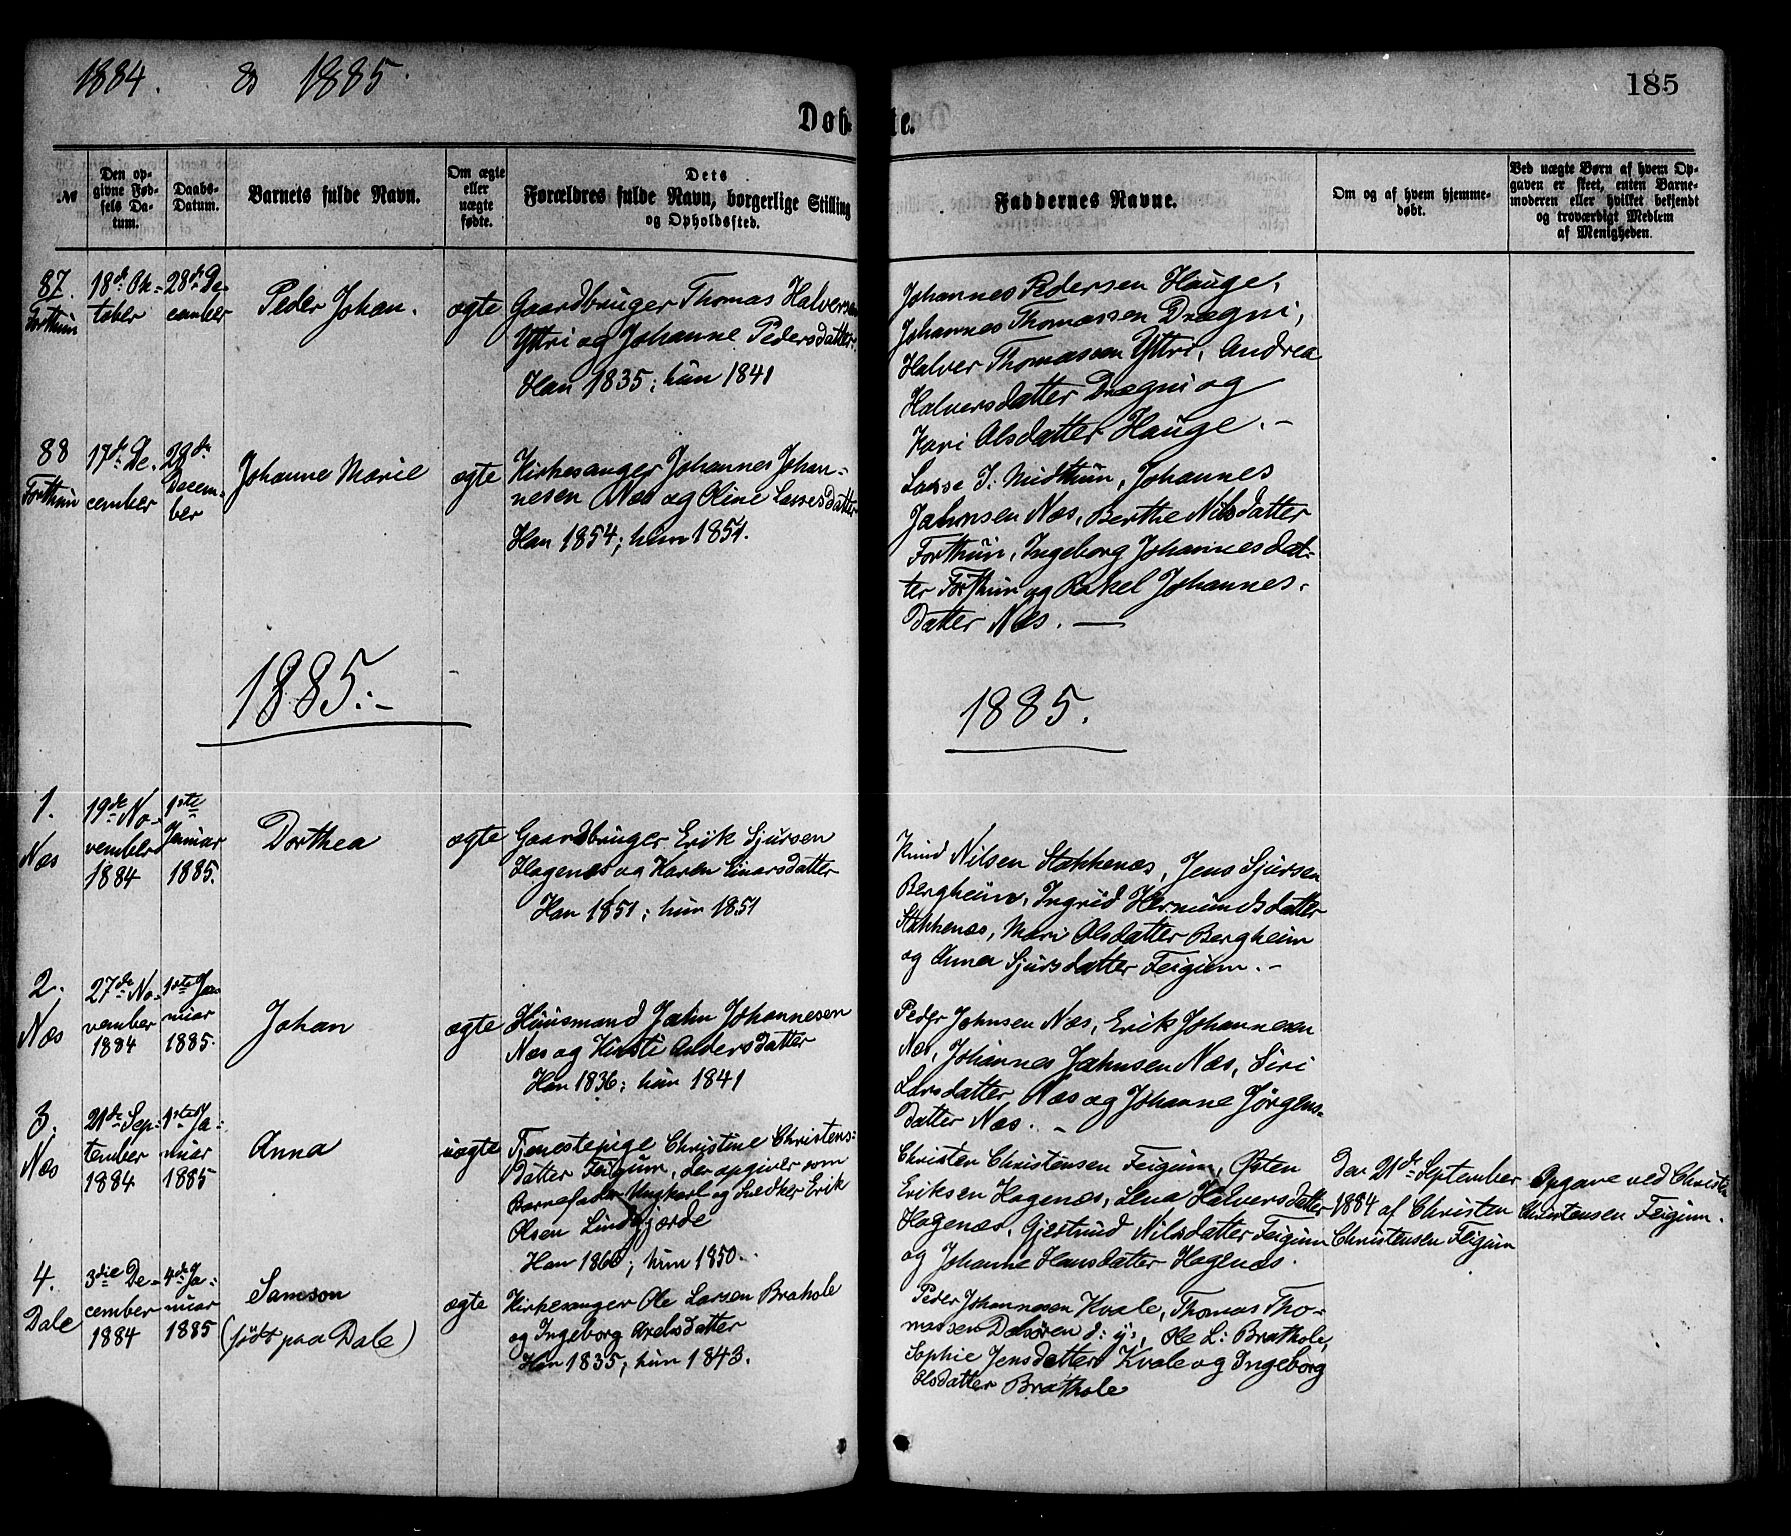 1884. & 1885.
185
Døbte.
№
Den opgivne Fødsels Datum.
Daabs-Datum.
Barnets fulde Navn.
Om ægte eller uægte fødte.
Dets Forældres fulde Navn, borgerlige Stilling og Opholdssted.
Faddernes Navne.
Om og af hvem hjemmedøbt.
Ved uægte Børn af hvem Opgaven er skeet, enten Barnemoderen eller hvilket bekjendt og troværdigt Medlem af Menigheden.
87.
Forthun
18de Ok-
tober
28de De-
cember
Peder Johan.
ægte
Gaardbruger Thomas Halversen
Yttri og Johanne Pedersdatter.
Han 1835; hun 1841
Johannes Pedersen Hauge,
Johannes Thomassen Drægni,
Halver Thomassen Yttri, Andrea
Halversdatter Drægni og
Kari Olsdatter Hauge. –
88
Forthun
17de De-
cember
28de
Decem-
ber
Johanne Marie
ægte
Kirkesanger Johannes Johan-
nesen Næs og Oline Lassesdatter
Han 1854; hun 1851.
Lasse J. Midthun, Johannes
Jahnsen Næs, Berthe Nilsdatter
Forthun, Ingeborg Johannesdat-
ter Forthun og Rakel Johannes-
datter Næs. —
1885. –
1885.
1.
Næs
19de No-
vember
1884
1ste
Januar
1885.
Dorthea
ægte
Gaardbruger Erik Sjursen
Hagenæs og Karen Einarsdatter
Han 1851; hun 1851
Knud Nilsen Stokkenæs, Jens Sjursen
Bergheim, Ingrid Hermundsdatter
Stokkenæs, Mari Olsdatter Bergheim
og Anna Sjursdatter Feigum. –
2.
Næs
27de No-
vember
1884
1ste Ja-
nuar
1885.
Johan
ægte
Huusmand Jahn Johannesen
Næs og Kirsti Andersdatter
Han 1836; hun 1841
Peder Johnsen Næs, Erik Johannesen
Næs, Johannes Jahnsen Næs, Siri
Larsdatter Næs og Johanne Jørgens-
datter Næs. –
3.
Næs
21de Sep-
tember
1884
1ste Ja-
nuar
1885
Anna
uægte
Tjenestepige Christine Christens-
datter Feigum, der opgiver som
Barnefader Ungkarl og Snedker Erik
Olsen Lindefjerde
Han 1860; hun 1850.
Christen Christensen Feigum, Østen
Eriksen Hagenæs, Lena Halversdatter
Hagenæs, Gjertrud Nilsdatter Feigum
og Johanne Hansdatter Hagenæs.
Den 21de September
1884 af Christen
Christensen Feigum
Opgave ved Christen
Christensen Feigum.
4.
Dale
3die De-
cember
1884
4de Ja-
nuar
1885
Samson
(født paa Dale)
ægte
Kirkesanger Ole Larsen Brahole
og Ingeborg Axelsdatter
Han 1835; hun 1843.
Peder Johannesen Kvale, Thomas Tho-
massen Dalsøren d: y:, Ole L: Brathole,
Sophie Jensdatter Kvale og Ingeborg
Olsdatter Brathole